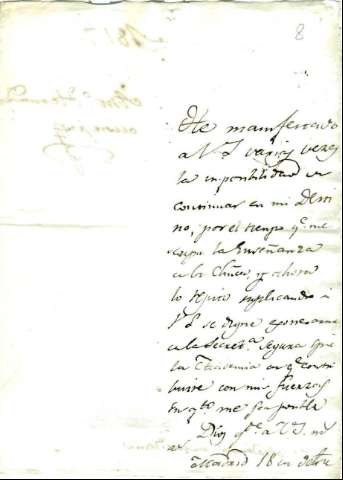 8
He manifestado
a V S varias vezes
la imposibilidad de
continuar en mi Desti
no, por el tiempo q.e me
ocupa la Enseñanza
de los Chicos, y ahora
lo repito suplicando a
V S se digne exonerarme
de la Secret.a segura que
la Academia en q.e contri
buire con mis fuerzas
en q.to me sea posible
Dios g.e a V S. m.s
a.s Madrid 18 de Octre